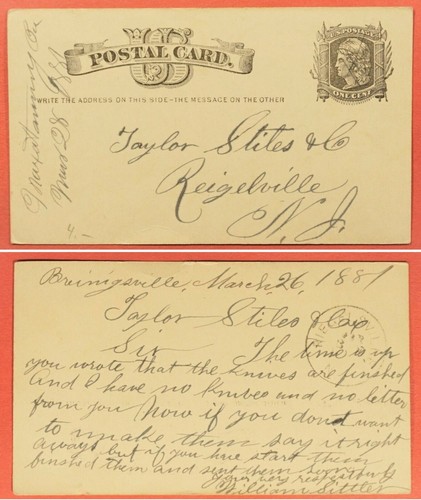 U.S. POSTAGE
POSTAL CARD.
US
WRITE THE ADDRESS ON THIS SIDE-THE MESSAGE ON THE OTHER
ONE CENT
Maxatawny Pa
Mar 28 1881
Taylor Stiles & Co
Reigelville
N. J.
4.-
Breinigsville, March, 26, 1881
Taylor Stiles & Co
Sir The time is up
you wrote that the knives are finished
and I have no knives and no letter
from you Now if you dont want
to make them say it right
aways but if you have start them
finished them and sent them soon
your very respectfully
William